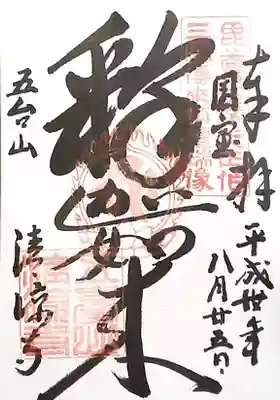 奉拝
国宝
平成卅年
八月廿五日
釈迦如来
五台山
清凉寺